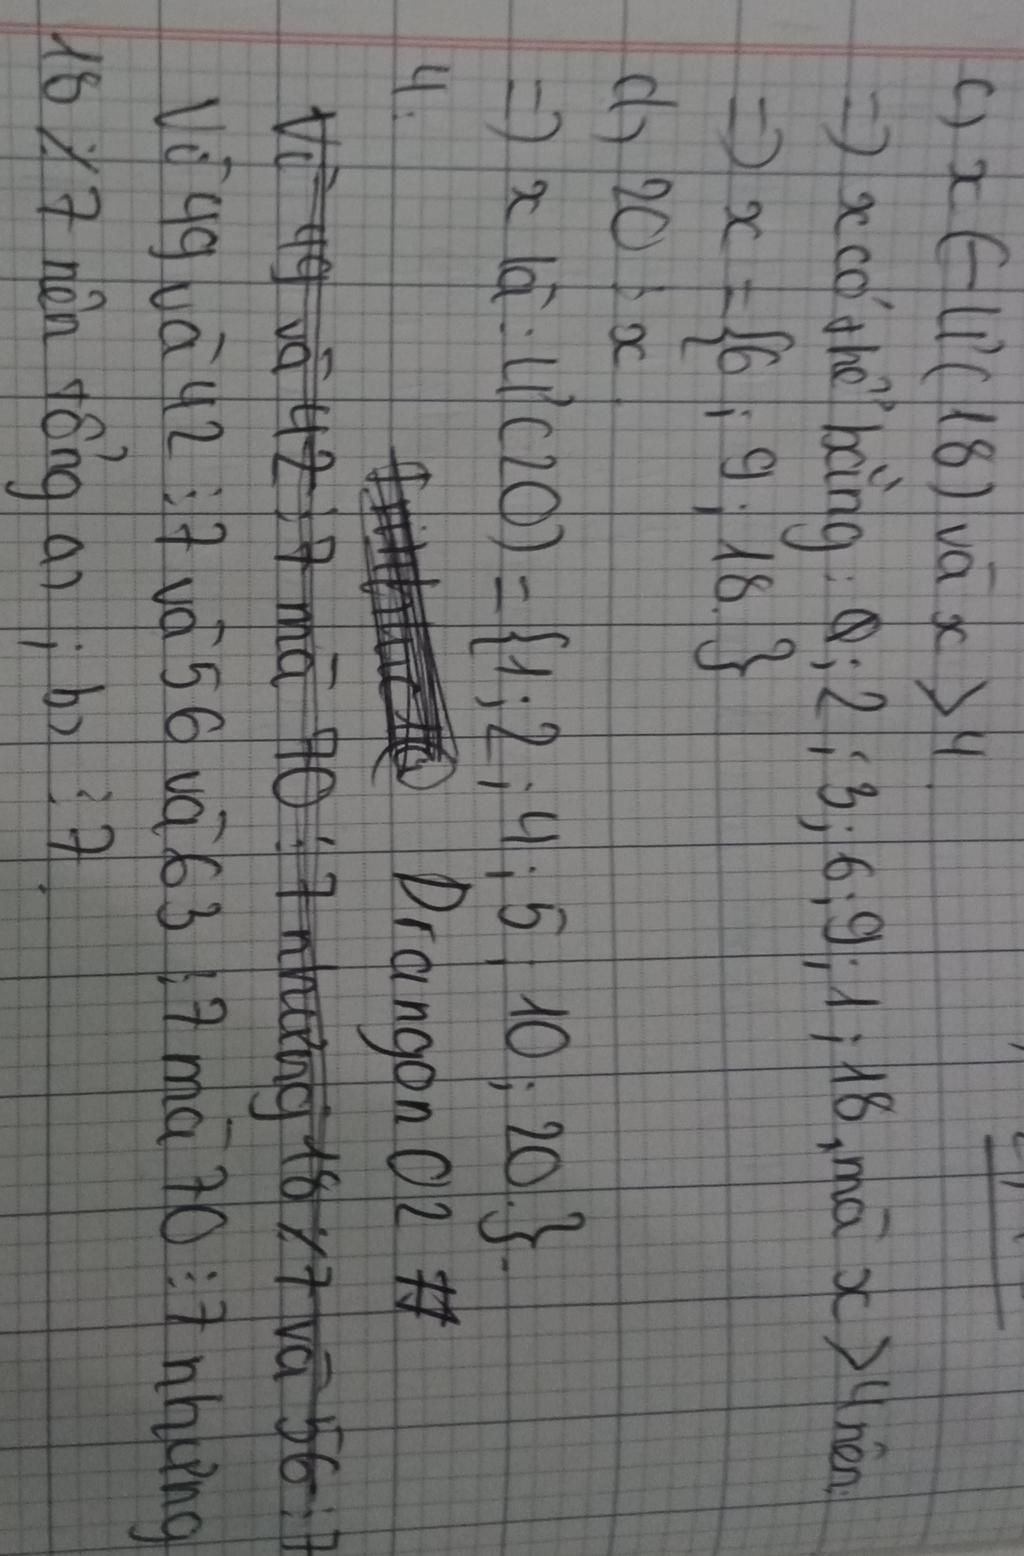 c) x ∈ Ư(18) và x > 4.
=) x có thể bằng: 0; 2; 3; 6; 9; 1; 18, mà x > 4 nên
=) x = {6; 9; 18.}
d) 20 ⋮ x.
=) x là: Ư(20) = {1; 2; 4; 5; 10; 20.}.
4. Drangon 02 #
Vì 49 và 42 ⋮ 7 mà 70 ⋮ 7 nhưng 18 ⋮̸ 7 và 56 ⋮ 7
Vì 49 và 42 ⋮ 7 và 56 và 63 ⋮ 7 mà 70 ⋮ 7 nhưng
18 ⋮̸ 7 nên tổng a); b) ⋮ 7.